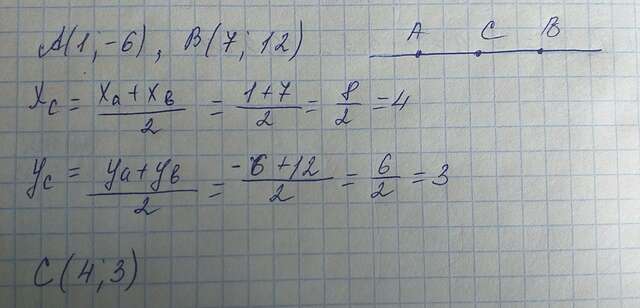 A(1;-6), B(7; 12) A C B
Xc = Xa + Xв / 2 = 1+7 / 2 = 8 / 2 = 4
Yc = Ya + Yв / 2 = -6 + 12 / 2 = 6 / 2 = 3
C(4;3)